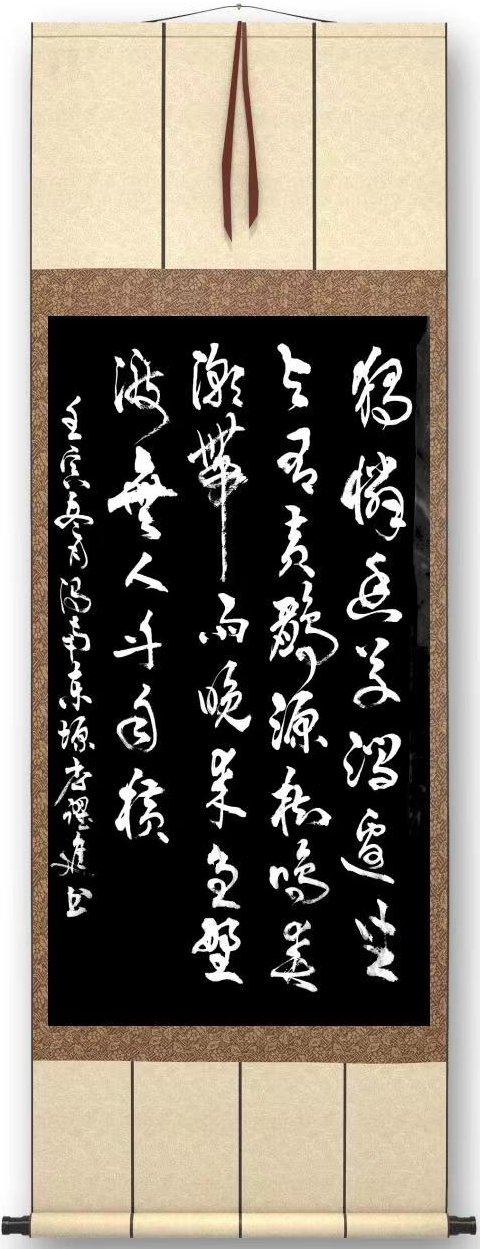 獨憐幽草澗邊生
上有黃鸝深樹鳴春
潮帶雨晚來急野
渡無人舟自橫
壬寅冬月渭南東塬李書